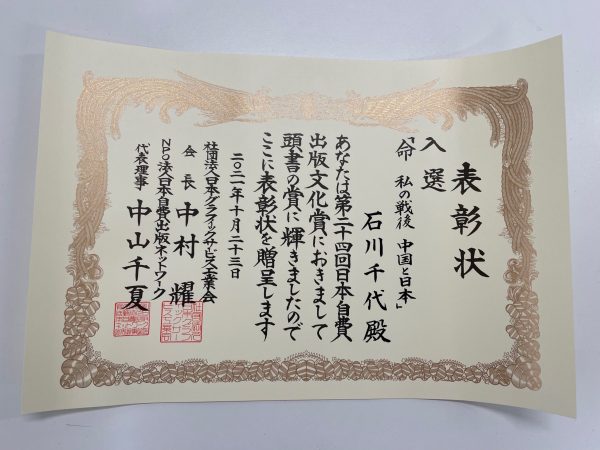 表彰状
入選
「命 私の戦後 中国と日本」
石川千代殿
あなたは第二十四回日本自費
出版文化賞におきまして
頭書の賞に輝きましたので
ここに表彰状を贈呈します
二〇二一年十月二十三日
社団法人日本グラフィックサービス工業会
会長 中村耀
NPO法人日本自費出版ネットワーク
代表理事 中山千夏